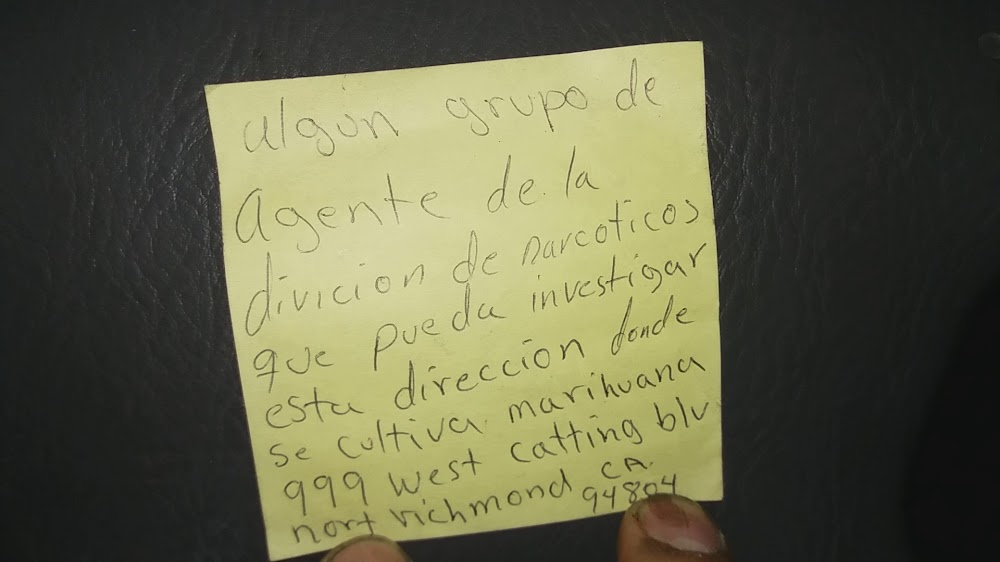 algún grupo de
Agente de la
divicion de narcoticos
que pueda investigar
esta direccion donde
se cultiva marihuana
999 west catting blv
nort richmond CA.
94804